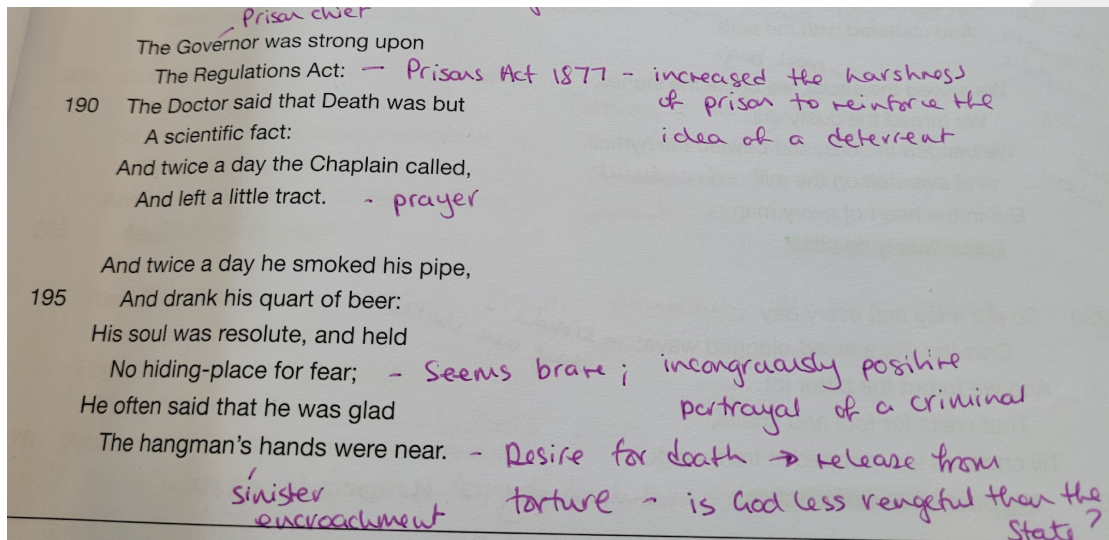 Prison chief
The Governor was strong upon
The Regulations Act: – Prisons Act 1877 – increased the harshness
of prison to reinforce the
190 The Doctor said that Death was but
A scientific fact:
idea of a deterrent
And twice a day the Chaplain called,
And left a little tract. - prayer
And twice a day he smoked his pipe,
195 And drank his quart of beer:
His soul was resolute, and held
No hiding-place for fear; - Seems brave; incongruously positive
portrayal of a criminal
He often said that he was glad
The hangman's hands were near. - Desire for death → release from
sinister
encroachment
torture - is God less vengeful than the
State?